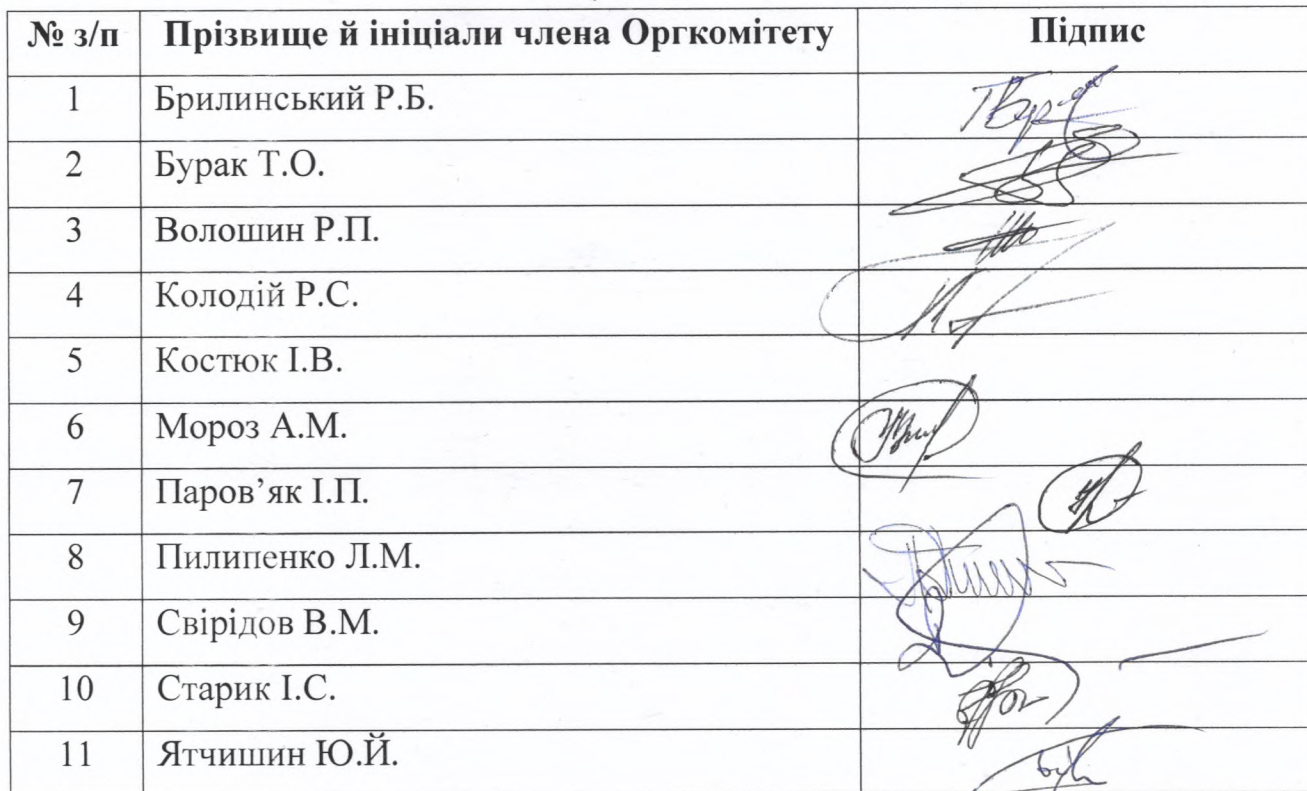 № з/п Прізвище й ініціали члена Оргкомітету Підпис
1 Брилинський Р.Б.
2 Бурак Т.О.
3 Волошин Р.П.
4 Колодій Р.С.
5 Костюк І.В.
6 Мороз А.М.
7 Паров’як І.П.
8 Пилипенко Л.М.
9 Свірідов В.М.
10 Старик І.С.
11 Ятчишин Ю.Й.